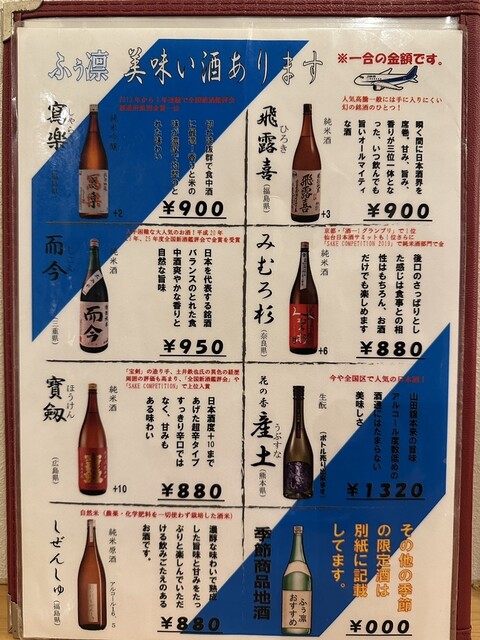 ふぅ凛 美味い酒あります
※一合の金額です。
寫楽
純米吟醸
切れ味抜群で食中酒
¥900
+2
人気高騰一般には手に入りにくい
幻の銘酒のひとつ！
飛露喜
ひろき
(福島県)
純米酒
瞬く間に日本酒界を
席巻、甘み、旨み、
香りが三位一体とな
った、いつ飲んでも
旨いオールマイティ
な酒
+3
¥900
而今
(三重県)
純米酒
日本を代表する銘酒
バランスのとれた食
中酒爽やかな香りと
自然な旨味
¥950
京都・「酒-1グランプリ」で1位
仙台日本酒サミットも1位さらに
「SAKE COMPETITION 2018」で純米酒部門で金
みむろ杉
(奈良県)
純米酒
後口のさっぱりとし
た感じは食事との相
性はもちろん、お酒
だけでも楽しめます
+6
¥880
「宝剣」の造り手、土井鉄也氏の異色の経歴
周囲の評価も高まり、「全国新酒鑑評会」や
「SAKE COMPETITION」で上位入賞
寶劔
ほうけん
(広島県)
純米酒
日本酒度+10まで
あげた超辛タイプ
すっきり辛口では
なく、甘みも
ある味わい
+10
¥880
今や全国区で人気の日本酒！
花の香
産土
うぶすな
(熊本県)
生酛
(ボトル売り
山田錦本来の旨味
アルコール度数低めの
酒通にはたまらない
美味しさ
¥1320
自然米（農薬・化学肥料を一切使わず栽培した酒米）
しぜんしゅ
(福島県)
純米原酒
濃醇な味わいで熟成
した旨味と甘みをたっ
ぷりと楽しんでいただ
ける飲みごたえのある
お酒です。
¥880
季節商品地酒
ふぅ凛
おすすめ
その他の季節
の限定酒は
別紙に記載
してます。
¥000